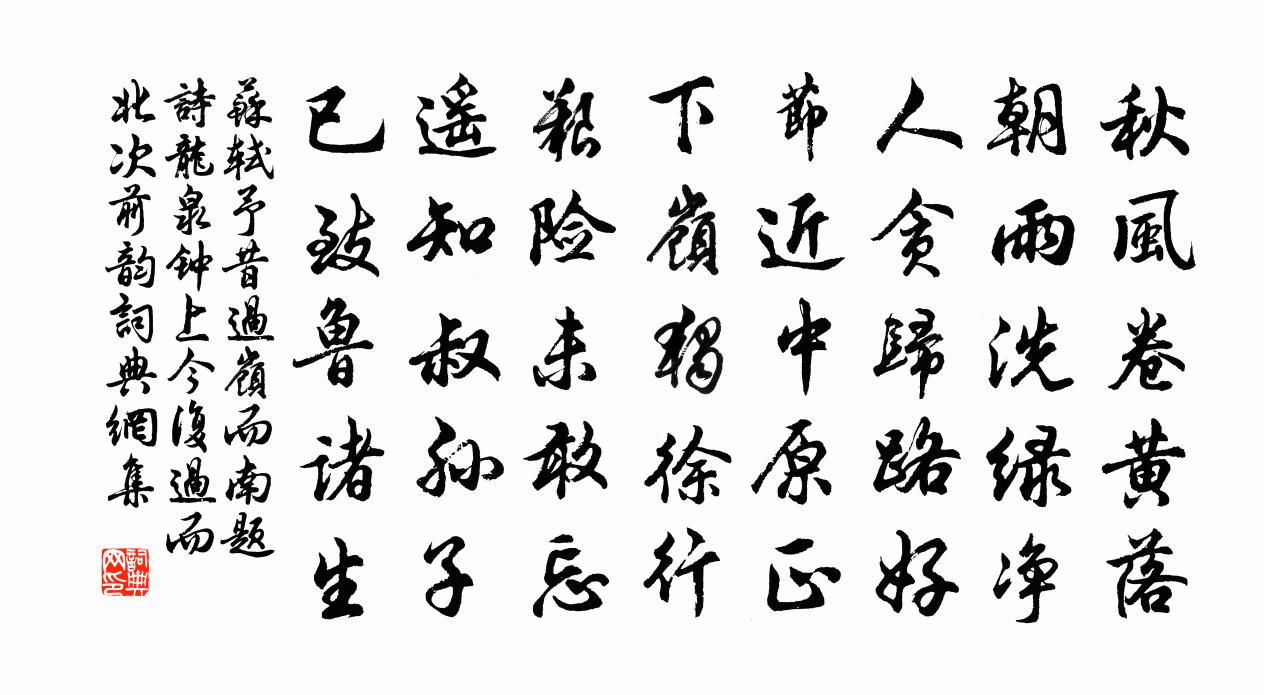 秋風卷黃落
朝雨洗绿净
人贪歸路好
節近中原正
下嶺獨徐行
艱险未敢忘
遥知叔孙子
已致魯諸生
蘇轼予昔過嶺而南题
詩龍泉钟上今復過而
北次前韵詞典網集
詞典网印